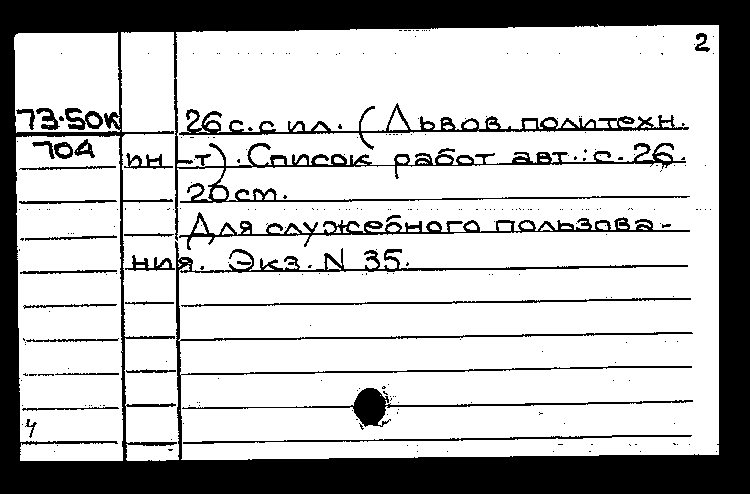 2
73-50к 26 с. с ил. (Львов. политехн.
704 ин-т). Список работ авт.: с. 26.
20 см.
Для служебного пользова-
ния. Экз. N 35.
4